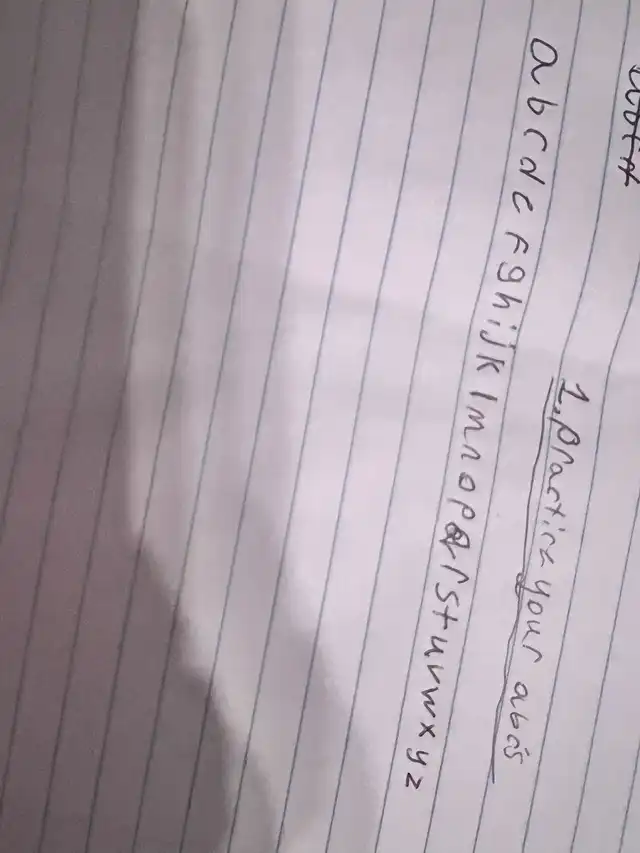 1. practice your abc's
abcdefghijklmnopqrstuvwxyz